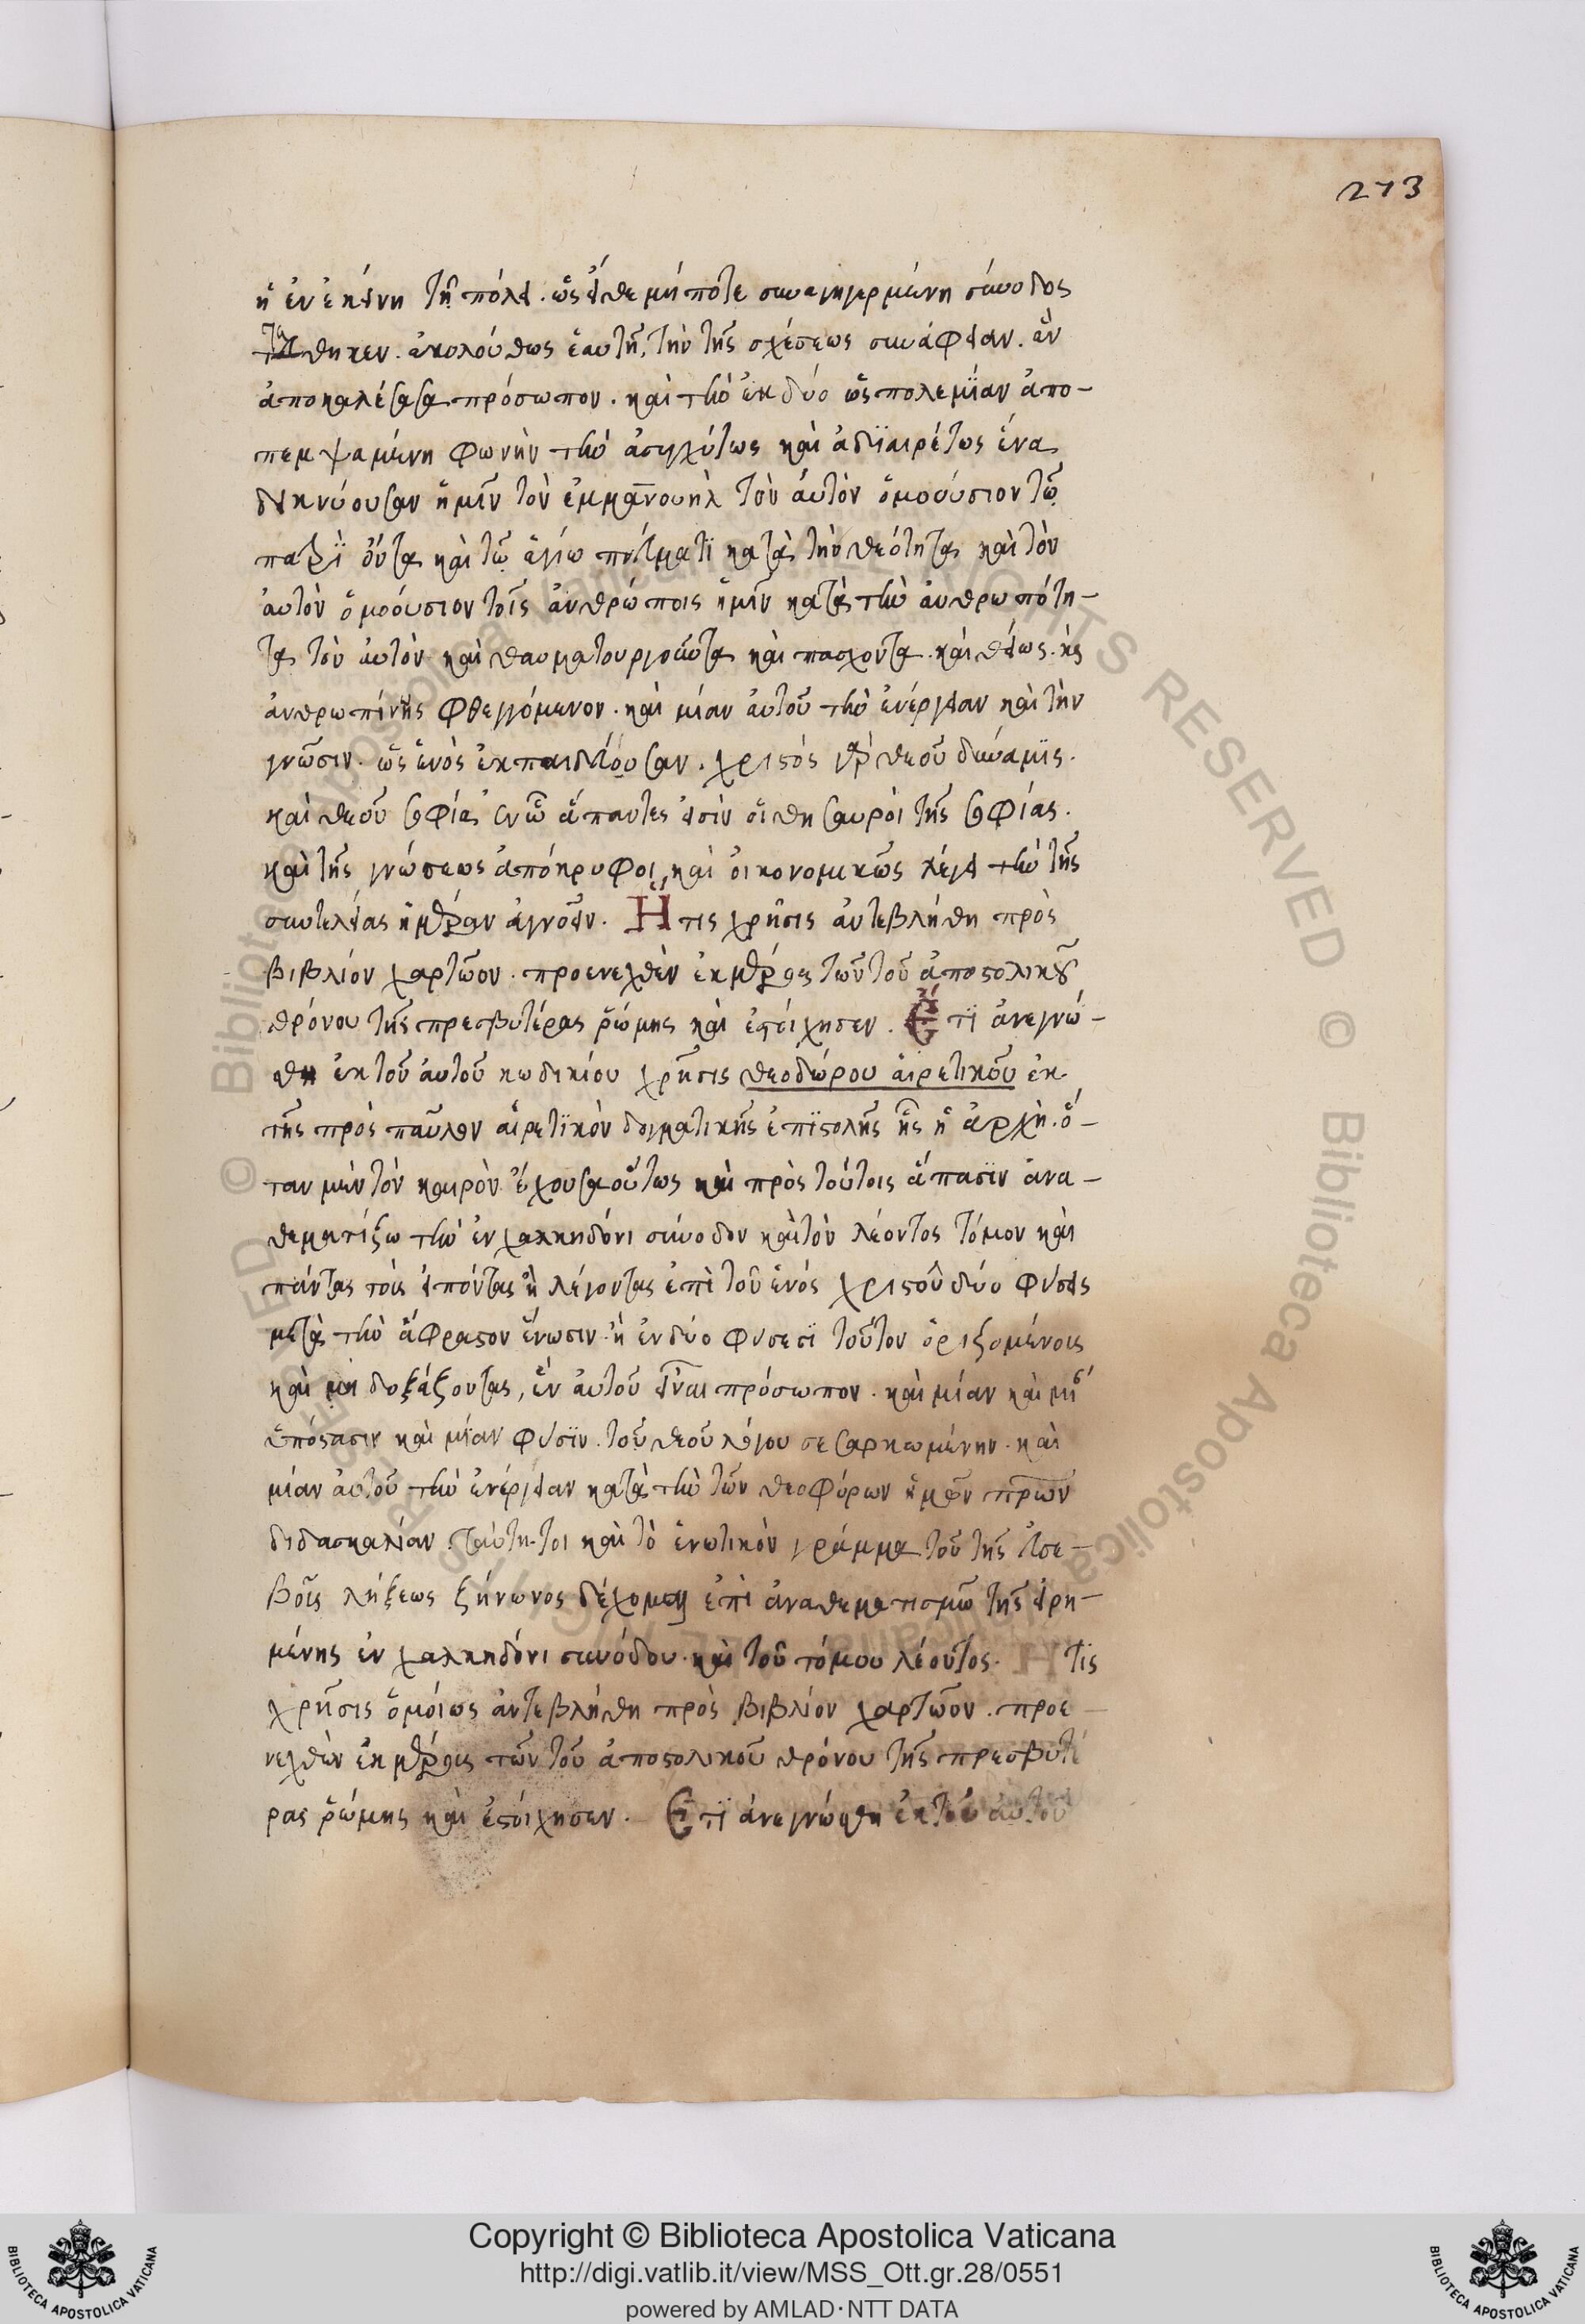 273
ἡ ἐν ἐκείνῃ τῇ πόλει. ὡς εἴθε μήποτε συναγηγερμένη σύνοδος
τέθηκεν. ἀκολούθως ἑαυτῇ, τὴν τῆς σχέσεως συνάφειαν. ἓν
ἀποκαλέσασα πρόσωπον. καὶ τὴν ἐκ δύο ὡς πολεμΐαν ἀπο-
πεμψαμένη φωνὴν τὴν ἀσυγχύτως καὶ ἀδϊαιρέτως ἕνα
δεικνύουσαν ἡμῖν τὸν ἐμμανουὴλ τὸν αὐτὸν ὁμοούσιον τῷ
πατρὶ ὄντα καὶ τῷ ἁγίω πνεύματϊ κατὰ τὴν θεότητα καὶ τὸν
αὐτὸν ὁμοούσιον τοῖς ἀνθρώποις ἡμῖν κατὰ τὴν ἀνθρωπότη-
τα τὸν αὐτὸν καὶ θαυματουργοῦντα καὶ πασχοντα. καὶ θείως. κ
ἀνθρωπίνης φθεγγόμενον. καὶ μίαν αὐτοῦ τὴν ἐνέργειαν καὶ τὴν
γνῶσιν. ὡς ἑνὸς ἐκπαιδεύουσαν. χριστός γὰρ θεοῦ δυνάμϊς.
καὶ θεοῦ σοφία ἐν ᾧ ἅπαντες εἰσὶν οἱ θησαυροὶ τῆς σοφίας.
καὶ τῆς γνώσεως ἀπόκρυφοι, καὶ οἰκονομικῶς λέγει τὴν τῆς
συντελείας ἡμέραν ἀγνοεῖν. Ἥ τις χρῆσις ἀντεβλήθη πρὸς
βιβλίον χαρτῶον. προενεχθὲν ἐκ μέρους τῶν τοῦ ἀποστολικοῦ
θρόνου τῆς πρεσβυτέρας ῥώμης καὶ ἐστοίχησεν. Ἔ τϊ ἀνεγνώ-
σθη ἐκ τοῦ αὐτοῦ κωδικίου χρῆσις θεοδώρου αἱρετικοῦ ἐκ
τῆς πρὸς παῦλον αἱρετϊκὸν δογματικῆς ἐπϊστολῆς ἧς ἡ ἀρχὴ. ὅ-
ταν μὲν τὸν καιρὸν ἔχουσα οὕτως καὶ πρὸς τούτοις ἅπασϊν ἀνα-
θεματίζω τὴν ἐν χαλκηδόνι σύνοδον καὶ τὸν λέοντος τόμον καὶ
πάντας τοὺς εἰπόντας ἢ λέγοντας ἐπὶ τοῦ ἑνός χριστοῦ δύο φύσεις
μετὰ τὴν ἄφραστον ἕνωσιν ἢ ἐν δύο φύσεσϊ τοῦτον ὁριζομένους
καὶ μὴ δοξάζοντας, ἓν αὐτοῦ εἶναι πρόσωπον. καὶ μίαν καὶ
ὑπόστασιν καὶ μίαν φύσϊν. τοῦ θεοῦ λόγου σεσαρκωμένην. καὶ
μίαν αὐτοῦ τὴν ἐνέργειαν κατὰ τὴν τῶν θεοφόρων ἡμῶν πρων
διδασκαλίαν. ταύτῃ τοι καὶ τὸ ἑνωτικὸν γράμμα τοῦ τῆς εὐσε-
βοῦς λήξεως ζήνωνος δέχομαι ἐπὶ ἀναθεματισμῶ τῆς εἰρη-
μένης ἐν χαλκηδόνι συνόδου. καὶ τοῦ τόμου λέοντος. Ἥ τις
χρῆσις ὁμοίως ἀντεβλήθη πρὸς βιβλίον χαρτῶον. προε-
νεχθὲν ἐκ μέρους τῶν τοῦ ἀποστολικοῦ θρόνου τῆς πρεσβυτέ
ρας ῥώμης καὶ ἐστοίχησεν. Ἔ τϊ ἀνεγνώσθη ἐκ τοῦ αὐτοῦ
© Biblioteca Apostolica Vaticana ALL RIGHTS RESERVED
Copyright © Biblioteca Apostolica Vaticana
http://digi.vatlib.it/view/MSS_Ott.gr.28/0551
powered by AMLAD·NTT DATA
BIBLIOTECA APOSTOLICA VATICANA
BIBLIOTECA APOSTOLICA VATICANA